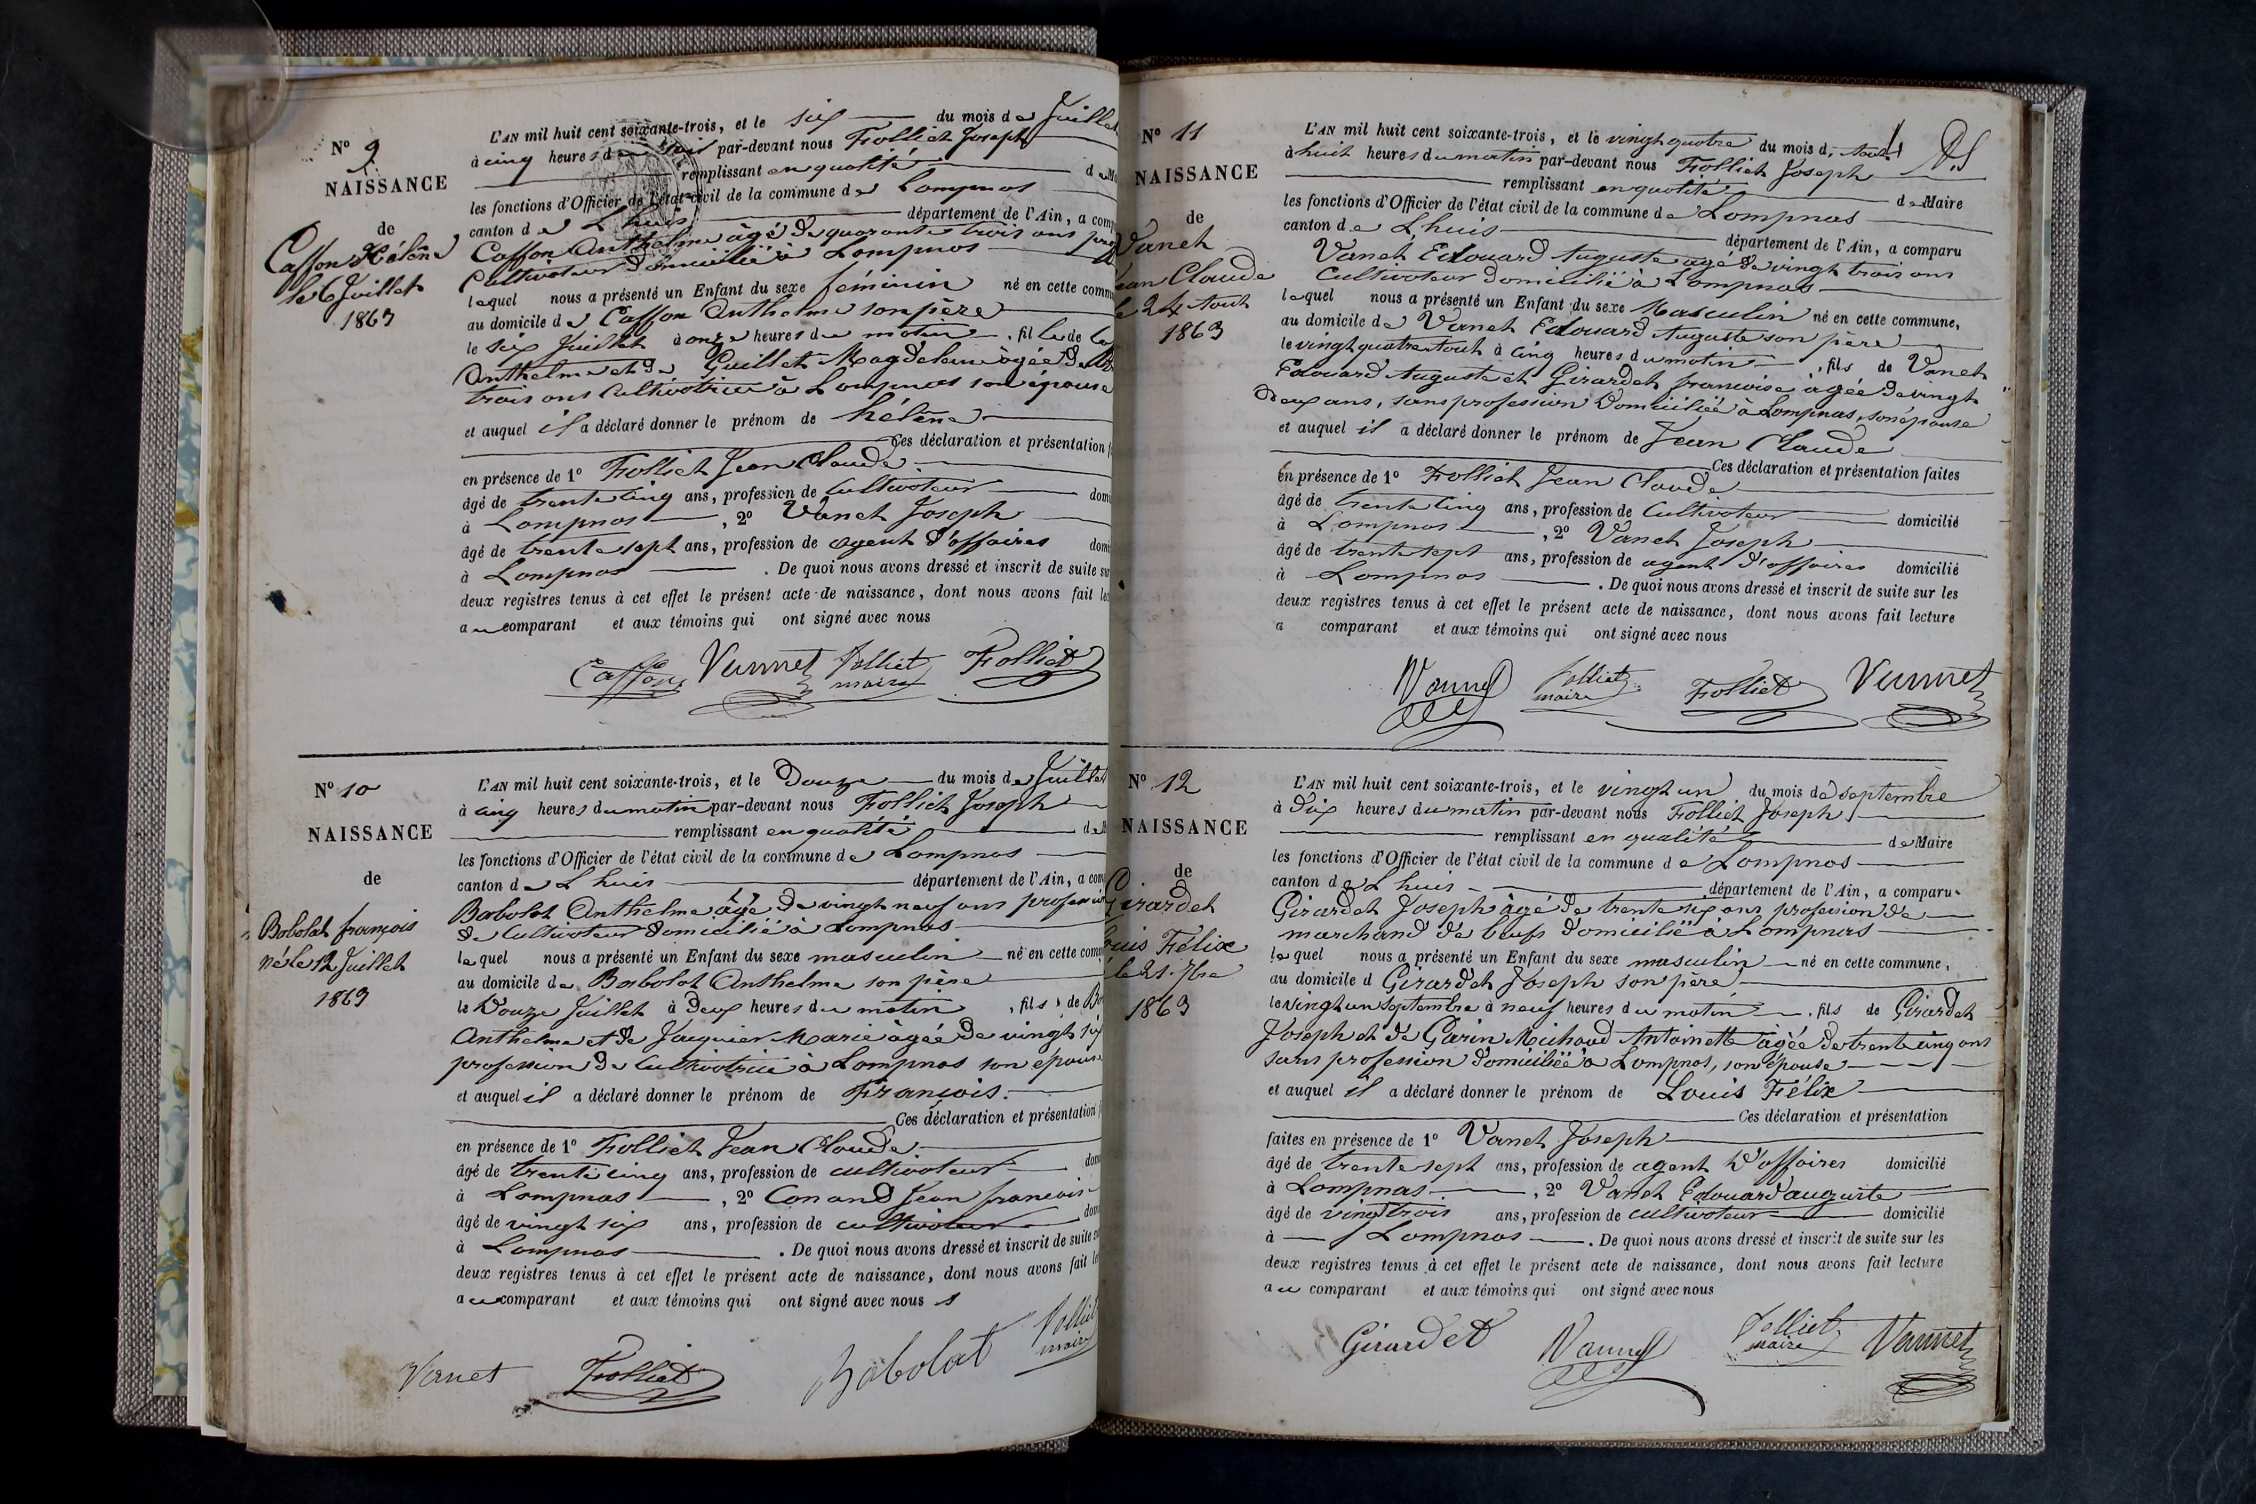 Nº 9
NAISSANCE
de
Caffon Hélène
le 6 Juillet
1863
L'AN mil huit cent soixante-trois, et le six du mois de Juillet
à cinq heures du soir par-devant nous Folliet Joseph
remplissant en qualité de
les fonctions d'Officier de l'état civil de la commune de Lompnas
canton de Lhuis département de l'Ain, a comp
Caffon Anthelme âgé de quarante trois ans
Cultivateur domicilié à Lompnas
lequel nous a présenté un Enfant du sexe féminin né en cette comm
au domicile de Caffon Anthelme son père
le six Juillet à onze heures du matin, fille de
Anthelme et de Guillet Magdeleine âgée de
trois ans Cultivatrice à Lompnas son épouse
et auquel il a déclaré donner le prénom de hélène
Ces déclaration et présentation
en présence de 1º Folliet Jean Claude
âgé de trente cinq ans, profession de Cultivateur dom
à Lompnas, 2º Vanet Joseph
âgé de trente sept ans, profession de agent d'affaires domi
à Lompnas. De quoi nous avons dressé et inscrit de suite su
deux registres tenus à cet effet le présent acte de naissance, dont nous avons fait lec
au comparant et aux témoins qui ont signé avec nous
Caffon Vannet Folliet maire Folliet
Nº 10
NAISSANCE
de
Babolat françois
né le 12 Juillet
1863
L'AN mil huit cent soixante-trois, et le Douze du mois de Juillet
à cinq heures du matin par-devant nous Folliet Joseph
remplissant en qualité de M
les fonctions d'Officier de l'état civil de la commune de Lompnas
canton de Lhuis département de l'Ain, a com
Babolat Anthelme âgé de vingt neuf ans profession
de Cultivateur domicilié à Lompnas
lequel nous a présenté un Enfant du sexe masculin né en cette comm
au domicile de Babolat Anthelme son père
le Douze Juillet à Deux heures du matin, fils de Ba
Anthelme et de Jacquier Marie âgée de vingt six
profession de Cultivatrice à Lompnas son épouse
et auquel il a déclaré donner le prénom de François.
Ces déclaration et présentation
en présence de 1º Folliet Jean Claude
âgé de trente cinq ans, profession de cultivateur dom
à Lompnas, 2º Conand Jean françois
âgé de vingt six ans, profession de cultivateur dom
à Lompnas. De quoi nous avons dressé et inscrit de suite
deux registres tenus à cet effet le présent acte de naissance, dont nous avons fait le
au comparant et aux témoins qui ont signé avec nous
Vanet Folliet Babolat Folliet maire
Nº 11
NAISSANCE
de
Vanet
ean Claude
le 24 Aout
1863
L'AN mil huit cent soixante-trois, et le vingt quatre du mois d'Aout
à huit heures du matin par-devant nous Folliet Joseph
remplissant en qualité de Maire
les fonctions d'Officier de l'état civil de la commune de Lompnas
canton de Lhuis département de l'Ain, a comparu
Vanet Edouard Auguste agé de vingt trois ans
Cultivateur domicilié à Lompnas
lequel nous a présenté un Enfant du sexe Masculin né en cette commune,
au domicile de Vanet Edouard Auguste son père
le vingt quatre Aout à Cinq heures du matin, fils de Vanet
Edouard Auguste et Girardet francoise agée de vingt
deux ans, sans profession Domiciliée à Lompnas, son épouse
et auquel il a déclaré donner le prénom de Jean Claude
Ces déclaration et présentation faites
en présence de 1º Folliet Jean Claude
âgé de trente cinq ans, profession de Cultivateur domicilié
à Lompnas, 2º Vanet Joseph
âgé de trente sept ans, profession de agent d'affaires domicilié
à Lompnas. De quoi nous avons dressé et inscrit de suite sur les
deux registres tenus à cet effet le présent acte de naissance, dont nous avons fait lecture
a comparant et aux témoins qui ont signé avec nous
Vannet Folliet maire Folliet Vannet
Nº 12
NAISSANCE
de
Girardet
ouis Félix
le 21 7bre
1863
L'AN mil huit cent soixante-trois, et le vingt un du mois de septembre
à Dix heures du matin par-devant nous Folliet Joseph
remplissant en qualité de Maire
les fonctions d'Officier de l'état civil de la commune de Lompnas
canton de Lhuis département de l'Ain, a comparu
Girardet Joseph âgé de trente six ans profession de
marchand de bœufs domicilié à Lompnas
lequel nous a présenté un Enfant du sexe masculin né en cette commune,
au domicile d Girardet Joseph son père
le vingt un septembre à neuf heures du matin, fils de Girardet
Joseph et de Garin Michaud Antoinette âgée de trente cinq ans
sans profession domiciliée à Lompnas, son épouse
et auquel il a déclaré donner le prénom de Louis Félix
Ces déclaration et présentation
faites en présence de 1º Vanet Joseph
âgé de trente sept ans, profession de agent d'affaires domicilié
à Lompnas, 2º Vanet Edouard auguste
âgé de vingt trois ans, profession de cultivateur domicilié
à Lompnas. De quoi nous avons dressé et inscrit de suite sur les
deux registres tenus à cet effet le présent acte de naissance, dont nous avons fait lecture
au comparant et aux témoins qui ont signé avec nous
Girardet Vannet Folliet maire Vannet